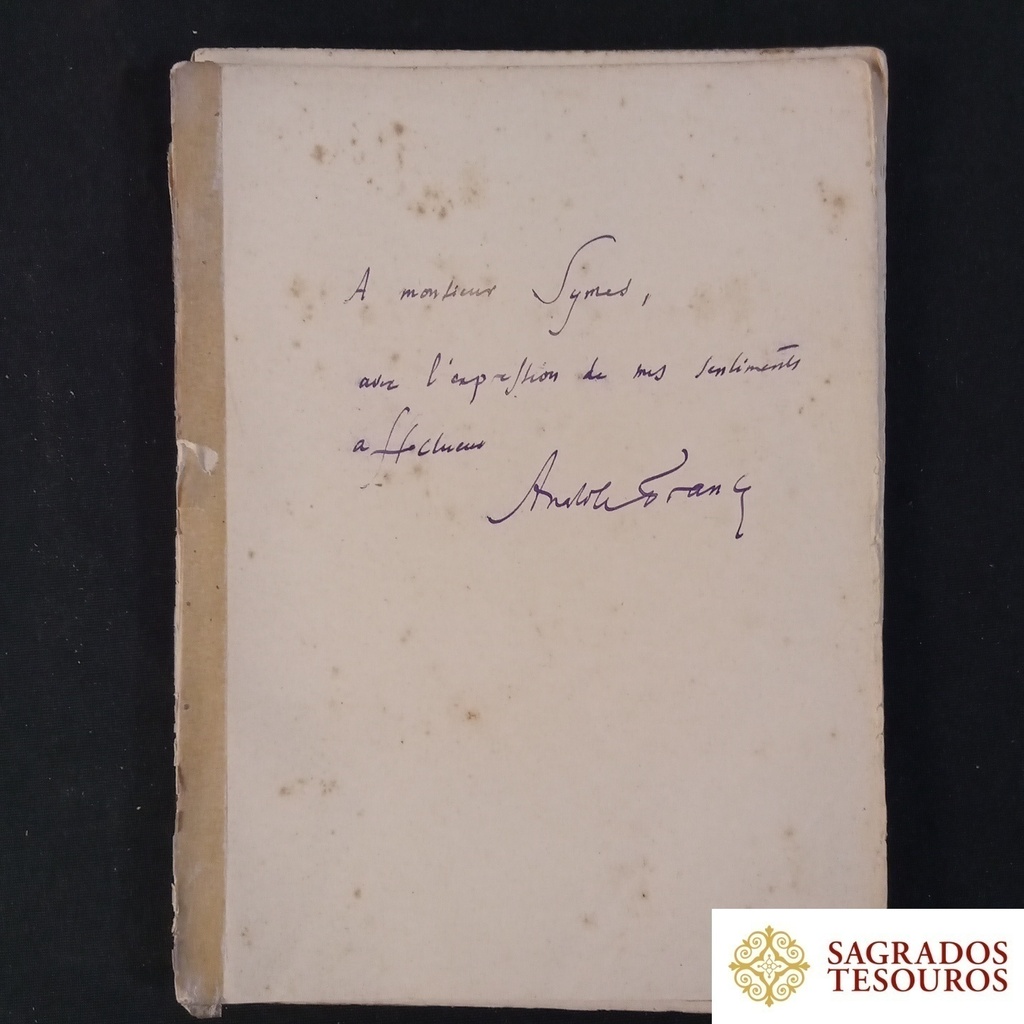 A monsieur Symes,
avec l'expression de mes sentiments
affectueux
Anatole France
SAGRADOS
TESOUROS